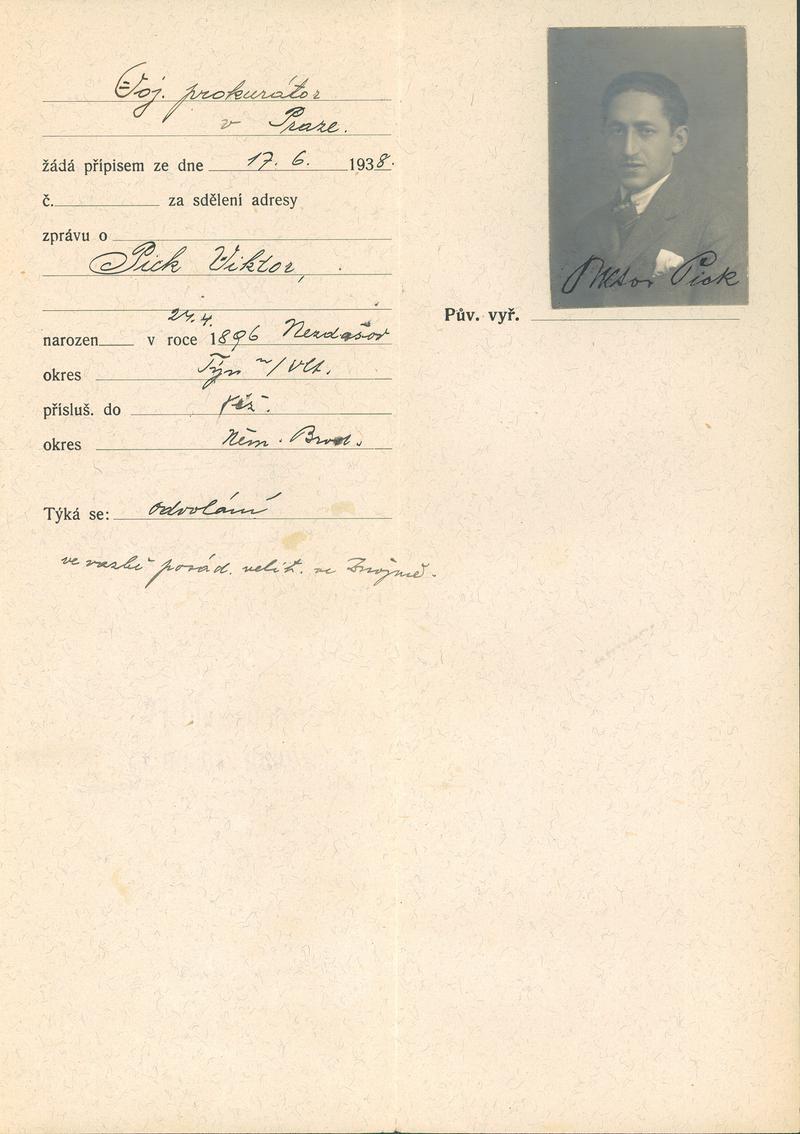 Voj. prokurátor
v Praze.
žádá přípisem ze dne 17. 6. 1938.
č. za sdělení adresy
zprávu o
Pick Viktor,
24. 4.
narozen v roce 1896 Nezdašov
okres Týn n/Vlt.
přísluš. do
okres Něm. Brod.
Týká se: odvolání
ve vazbě posád. velit. ve Znojmě.
Viktor Pick
Pův. vyř.